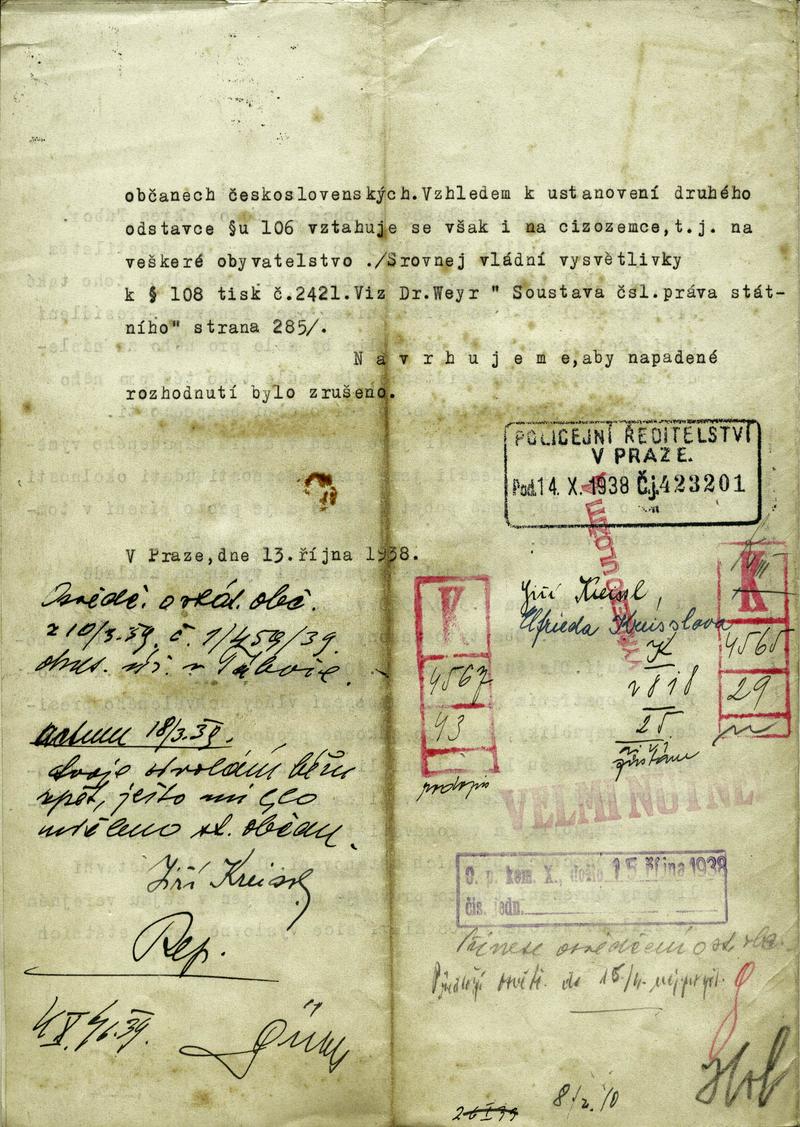 občanech československých.Vzhledem k ustanovení druhého
odstavce §u 106 vztahuje se však i na cizozemce,t.j. na
veškeré obyvatelstvo ./Srovnej vládní vysvětlivky
k § 108 tisk č.2421.Viz Dr.Weyr " Soustava čsl.práva stát-
ního" strana 285/.
N a v r h u j e m e,aby napadené
rozhodnutí bylo zrušeno.
POLICEJNÍ ŘEDITELSTVÍ
V PRAZE.
Pod. 14. X. 1938 Čj. 423201
V Praze,dne 13.října 1938.
Osvědč. o stát. obč.
z 10/3.39. č. 1/459/39.
okres. úř. v Táboře.
Jiří Kreisl,
Elfrieda Kreislova
V
4567
43
podpis
K
2818
25
zůstane
K
4565
29
18/3.39.
svoje odvolání béřu
zpět, ješto mi bylo
uděleno st. občan.
Jiří Kreisl
Rep.
VELMI NUTNÉ
O. p. kom. X., došlo 15. října 1938
čís. jedn.
Přinese osvědčení o st.
Předloží osvěd. do 15/4.